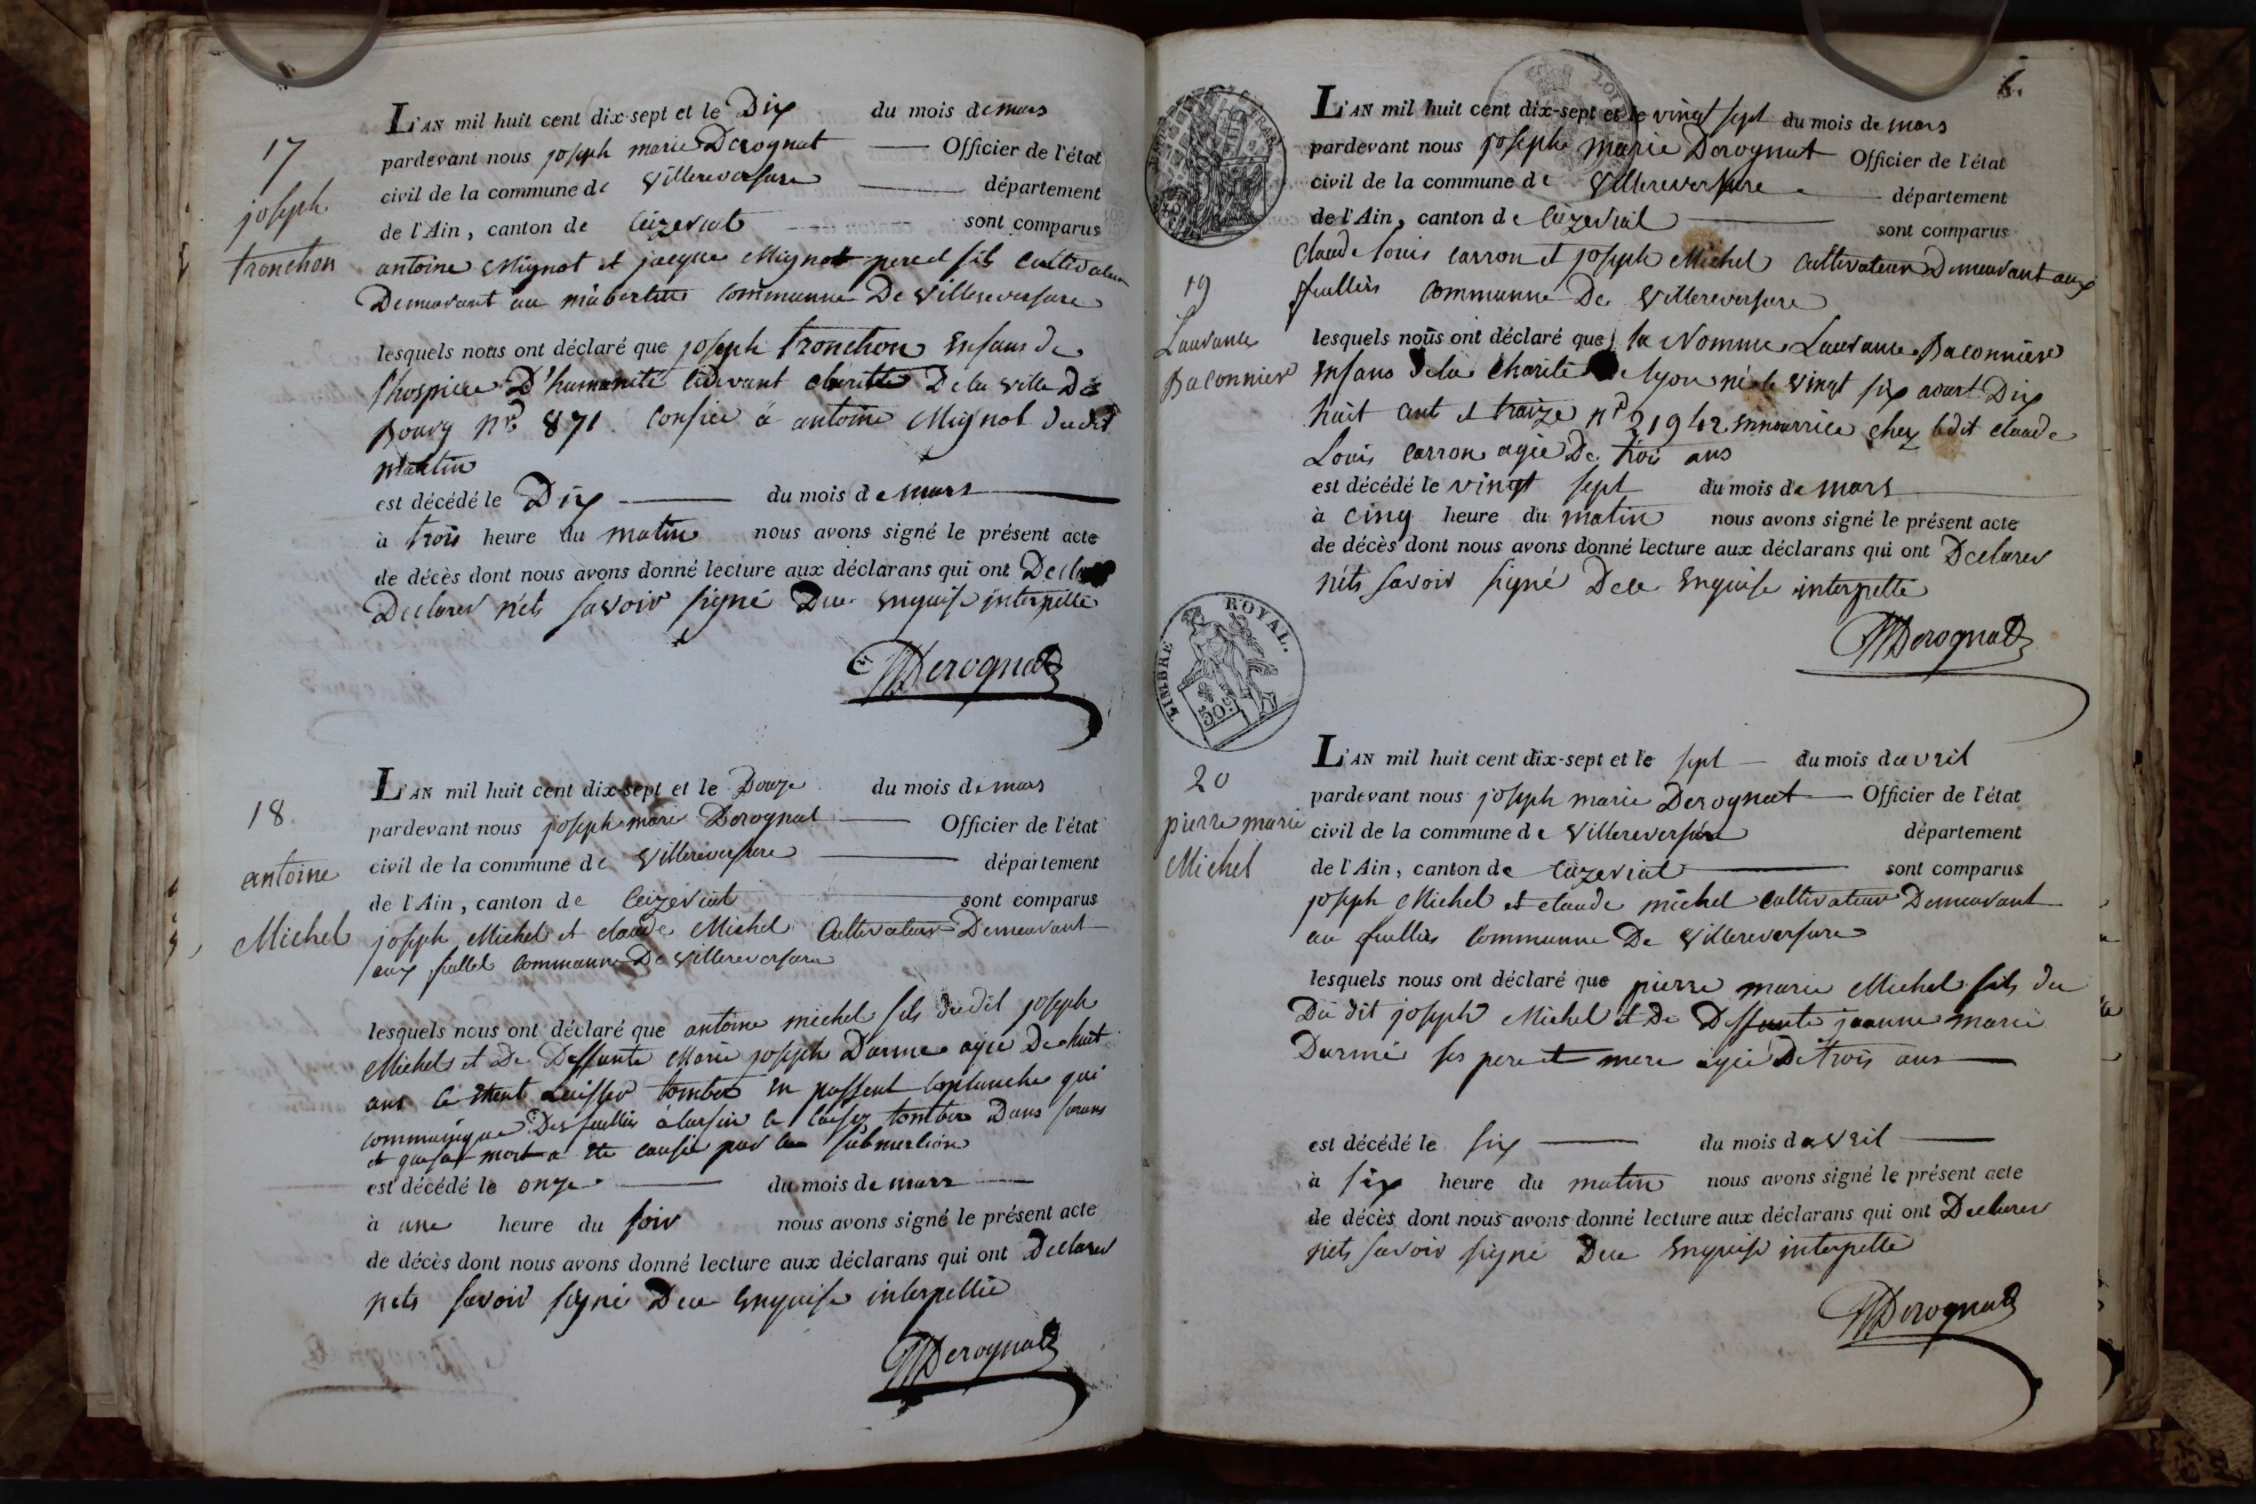 17
joseph
tronchon
L'AN mil huit cent dix-sept et le Dix du mois de mars
pardevant nous joseph marie Derognat Officier de l'état
civil de la commune de Villereversure département
de l'Ain, canton de Ceizeriat sont comparus
antoine Mignot et jacque Mignot pere et fils Cultivateur
Demeurant au commune De Villereversure
lesquels nous ont déclaré que joseph tronchon Enfans de
l'hospice D'humanité cidevant charitté De la ville De
Bourg No 871 confiee a antoine Mignot dudit
Martin
est décédé le Dix du mois de mars
à trois heure du matin nous avons signé le présent acte
de décès dont nous avons donné lecture aux déclarans qui ont
Declarer nets savoir signé Dece Enquise interpellé
Derognat
18
antoine
Michel
L'AN mil huit cent dix-sept et le Douze du mois de mars
pardevant nous joseph marie Derognat Officier de l'état
civil de la commune de Villereversure département
de l'Ain, canton de Ceizeriat sont comparus
joseph Michel et claude Michel Cultivateur Demeurant
aux commune De Villereversure
lesquels nous ont déclaré que antoine michel fils dudit joseph
Michel et De Deffunte Marie joseph Darme agée De huit
ans cê étent Laisser tomber En passent laplanche qui
communique Des a ce laisez tomber Dans
et que sa mort a ete causée par la submertion
est décédé le onze du mois de mars
à une heure du soir nous avons signé le présent acte
de décès dont nous avons donné lecture aux déclarans qui ont Declarer
nets savoir signé Dece Enquise interpellée
Derognat
6.
TIMBRE ROYAL.
50
19
Laurance
Baconnier
L'AN mil huit cent dix-sept et le vingt sept du mois de mars
pardevant nous joseph marie Derognat Officier de l'état
civil de la commune de Villereversure département
de l'Ain, canton de Ceizeriat sont comparus
Claude Louis Carron et joseph Michel Cultivateur Demeurant aux
commune De Villereversure
lesquels nous ont déclaré que la Nomme Laurance Baconniere
Enfans de la Charité de lyon né le vingt six aout Dix
huit cent et traize No 21942 Ennourrice chez ledit claude
Louis Carron agée De trois ans
est décédé le vingt sept du mois de mars
à cinq heure du matin nous avons signé le présent acte
de décès dont nous avons donné lecture aux déclarans qui ont Declarer
nets savoir signé Dece Enquise interpellé
Derognat
20
pierre marie
Michel
L'AN mil huit cent dix-sept et le sept du mois d'avril
pardevant nous joseph marie Derognat Officier de l'état
civil de la commune de Villereversure département
de l'Ain, canton de Ceizeriat sont comparus
joseph Michel et claude michel Cultivateur Demeurant
au commune De Villereversure
lesquels nous ont déclaré que pierre marie Michel fils du
Du dit joseph Michel et De Deffunte jeanne marie
Darme ses pere et mere agée De trois ans
est décédé le six du mois d'avril
à six heure du matin nous avons signé le présent acte
de décès dont nous avons donné lecture aux déclarans qui ont Declarer
nets savoir signé Dece Enquise interpellé
Derognat